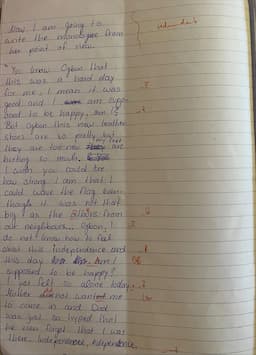 Now I am going to
write the monologue from
her point of view.
"You know Ogbon that
this was a hard day
for me, I mean it was
good and I am supp-
osed to be happy, am I?
But Ogbon this new leather
shoes are so pretty but
they are too new they are
hurting so much.
I wish you could see
how strong I am that I
could wave the flag even
though it was not that
big as the others from
our neighbours. Ogbon, I
do not know how to feel
over this independence and
this day. Am I
supposed to be happy?
I just felt so alone today.
Mother did not want me
to come in and Dad
was just so hyped that
he even forgot that I was
there. Independence, independence,